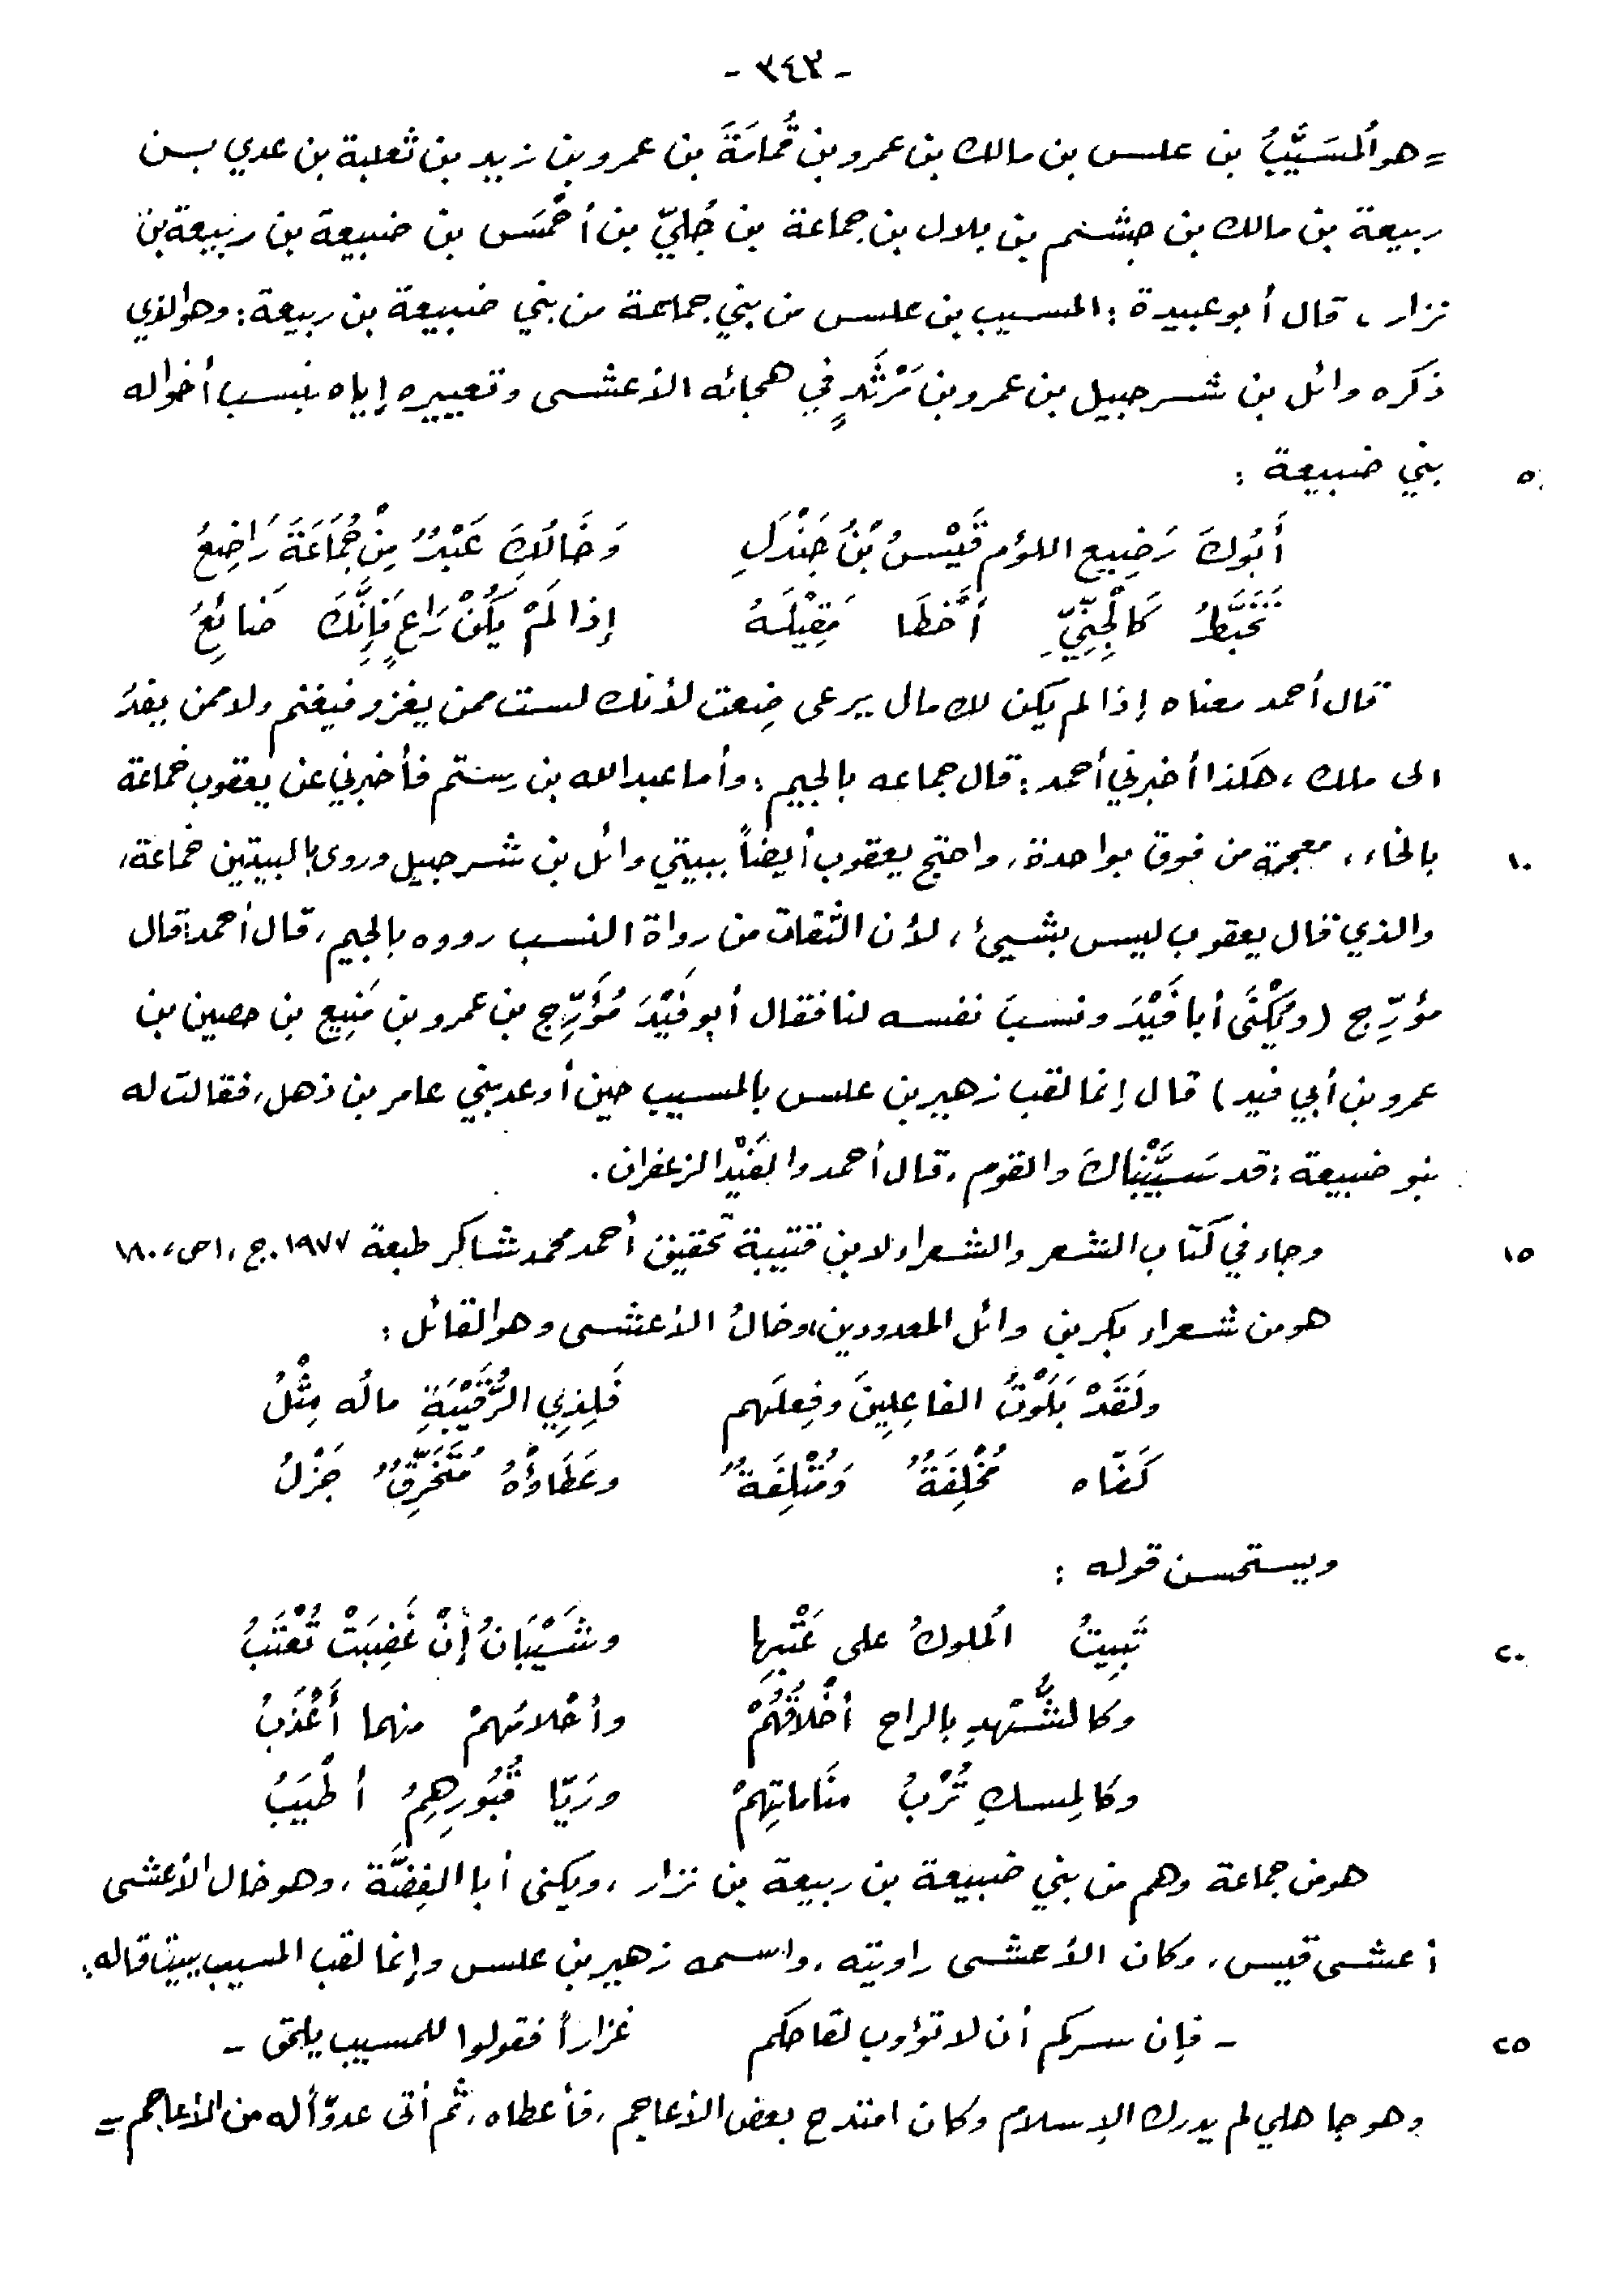 - ٣٤٣ -
= هو المُسَيَّبُ بن علس بن مالك بن عمرو بن قُمامَةَ بن عمرو بن زيد بن ثعلبة بن عدي بـن
ربيعة بن مالك بن جشم بن بلال بن جماعة بن جُليّ بن أحْمَس بن ضبيعة بن ربيعة بن
نزار، قال أبو عبيدة : المسيب بن علس من بني جماعة من بني ضبيعة بن ربيعة : وهو الذي
ذكره وائل بن شرحبيل بن عمرو بن مَرْثَدٍ في هجائه الأعشى وتعييره إياه بنسب أخواله
٥ بني ضبيعة :
أَبُوكَ رَضِيع اللؤم قَيْسُ بْنُ جَنْدَلِ وَخَالُكَ عَبْدٌ مِنْ جُمَاعَةَ رَاضِعُ
تَخَبَّطُ كَالْجِنِّيِّ أَخطَا مَقِيْلَهُ إذا لَمْ يَكُنْ رَاعٍ فَإِنَّكَ ضَائِعُ
قال أحمد معناه إذا لم يكن لك مال يرعى ضِعت لأنك لست ممن يغزو فيغنم ولا ممن يفدُ
الى ملك، هكذا أخبرني أحمد : قال جماعه بالجيم : وأما عبدالله بن رستم فأخبرني عن يعقوب خماعة
١٠ بالخاء، معجمة من فوق بواحدة، واحتج يعقوب أيضاً ببيتي وائل بن شرحبيل وروى بالبيتين خماعة،
والذي قال يعقوب ليس بشيئ، لأن الثقات من رواة النسب رووه بالجيم، قال أحمد: قال
مؤرِّج (ويُكْنَى أبا فَيْدَ ونسبَ نفسه لنا فقال أبو فَيْدَ مُؤَرِّج بن عمرو بن مَنِيع بن حصين بن
عمرو بن أبي فيد) قال إنما لقب زهير بن علس بالمسيب حين أوعد بني عامر بن ذهل، فقالت له
بنو ضبيعة : قد سَيَّبْناكَ والقوم، قال أحمد والفَيْد الزعفران.
١٥ وجاء في كتاب الشعر والشعراء لابن قتيبة تحقيق أحمد محمد شاكر طبعة ١٩٧٧. ج، ١ ص، ١٨٠
هو من شعراء بكر بن وائل المعدودين، وخالُ الأعشى وهو القائل :
ولَقَدْ بَلَوْتُ الفاعِلِينَ وفِعلَهم فَلِذِي الرُّقَيْبَةِ مالُه مِثْلُ
كَفّاه مُخْلِفَةٌ وَمُتْلِفَةٌ وعَطَاؤُهُ مُتَخَرِّقٌ جَزْلُ
ويستحسن قوله :
٢٠ تَبِيتُ المُلوكُ على عَتْبِها وشَيْبَانُ إنْ غَضِبَتْ تُعْتَبُ
وكالشُّهدِ بالراح أخْلاقُهُمْ وأحْلامُهمْ منهما أَعْذَبُ
وكالمِسكِ تُرْبُ مَناماتِهِمْ ورَيّا قُبُورِهِمُ أطْيَبُ
هو من جماعة وهم من بني ضبيعة بن ربيعة بن نزار، ويكنى أبا الفِضَّة، وهو خال الأعشى
أعشى قيس، وكان الأعشى راويته، واسمه زهير بن علس وإنما لقب المسيب ببيت قاله :
٢٥ - فإن سركم أن لا تؤوب لقاحكم غزاراً فقولوا للمسيب يلحق -
وهو جاهلي لم يدرك الإسلام وكان امتدح بعض الأعاجم، فأعطاه، ثم أتى عدوّاً له من الأعاجم =